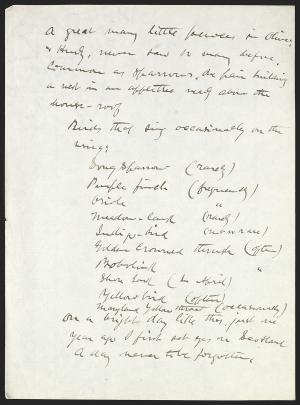 A great many little
& Hudy, never saw so many before,
Common as Sparrows, one pair building
a nest in an appletree nearly above the
house-roof
Birds that sing occasionally on the
wing;
Song Sparrow (rarely)
Purple finch (frequently)
Oriole "
Meadow-lark (rarely)
Indigo-bird (more rare)
Golden Crowned thrush (often)
Bobolink "
Shore Lark (In April)
Yellowbird (often)
Maryland Yellow throat (occasionally)
On a bright day like this, just one
year ago I first set eyes on Scotland
A day never to be forgotten,